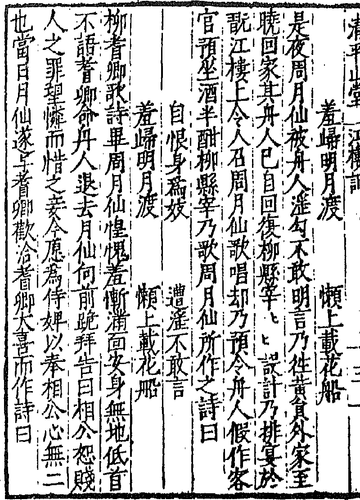 羞歸明月渡　懶上載花船
是夜周月仙被舟人滛勾不敢明言乃徃黃員外家至
曉回家其舟人已自回復柳縣宰々々設計乃排宴於
翫江樓上令人召周月仙歌唱却乃預令舟人假作客
官預坐酒半酣柳縣宰乃歌周月仙所作之詩曰
自恨身為妓　遭滛不敢言
羞歸明月渡　懶上載花船
柳耆卿歌詩畢周月仙惶愧羞慚滿面安身無地低首
不語耆卿命舟人退去月仙向前跪拜告曰相公恕賤
人之罪望憐而惜之妾今愿為侍婢以奉相公心無二
也當日月仙遂与耆卿歡洽耆卿大喜而作詩曰